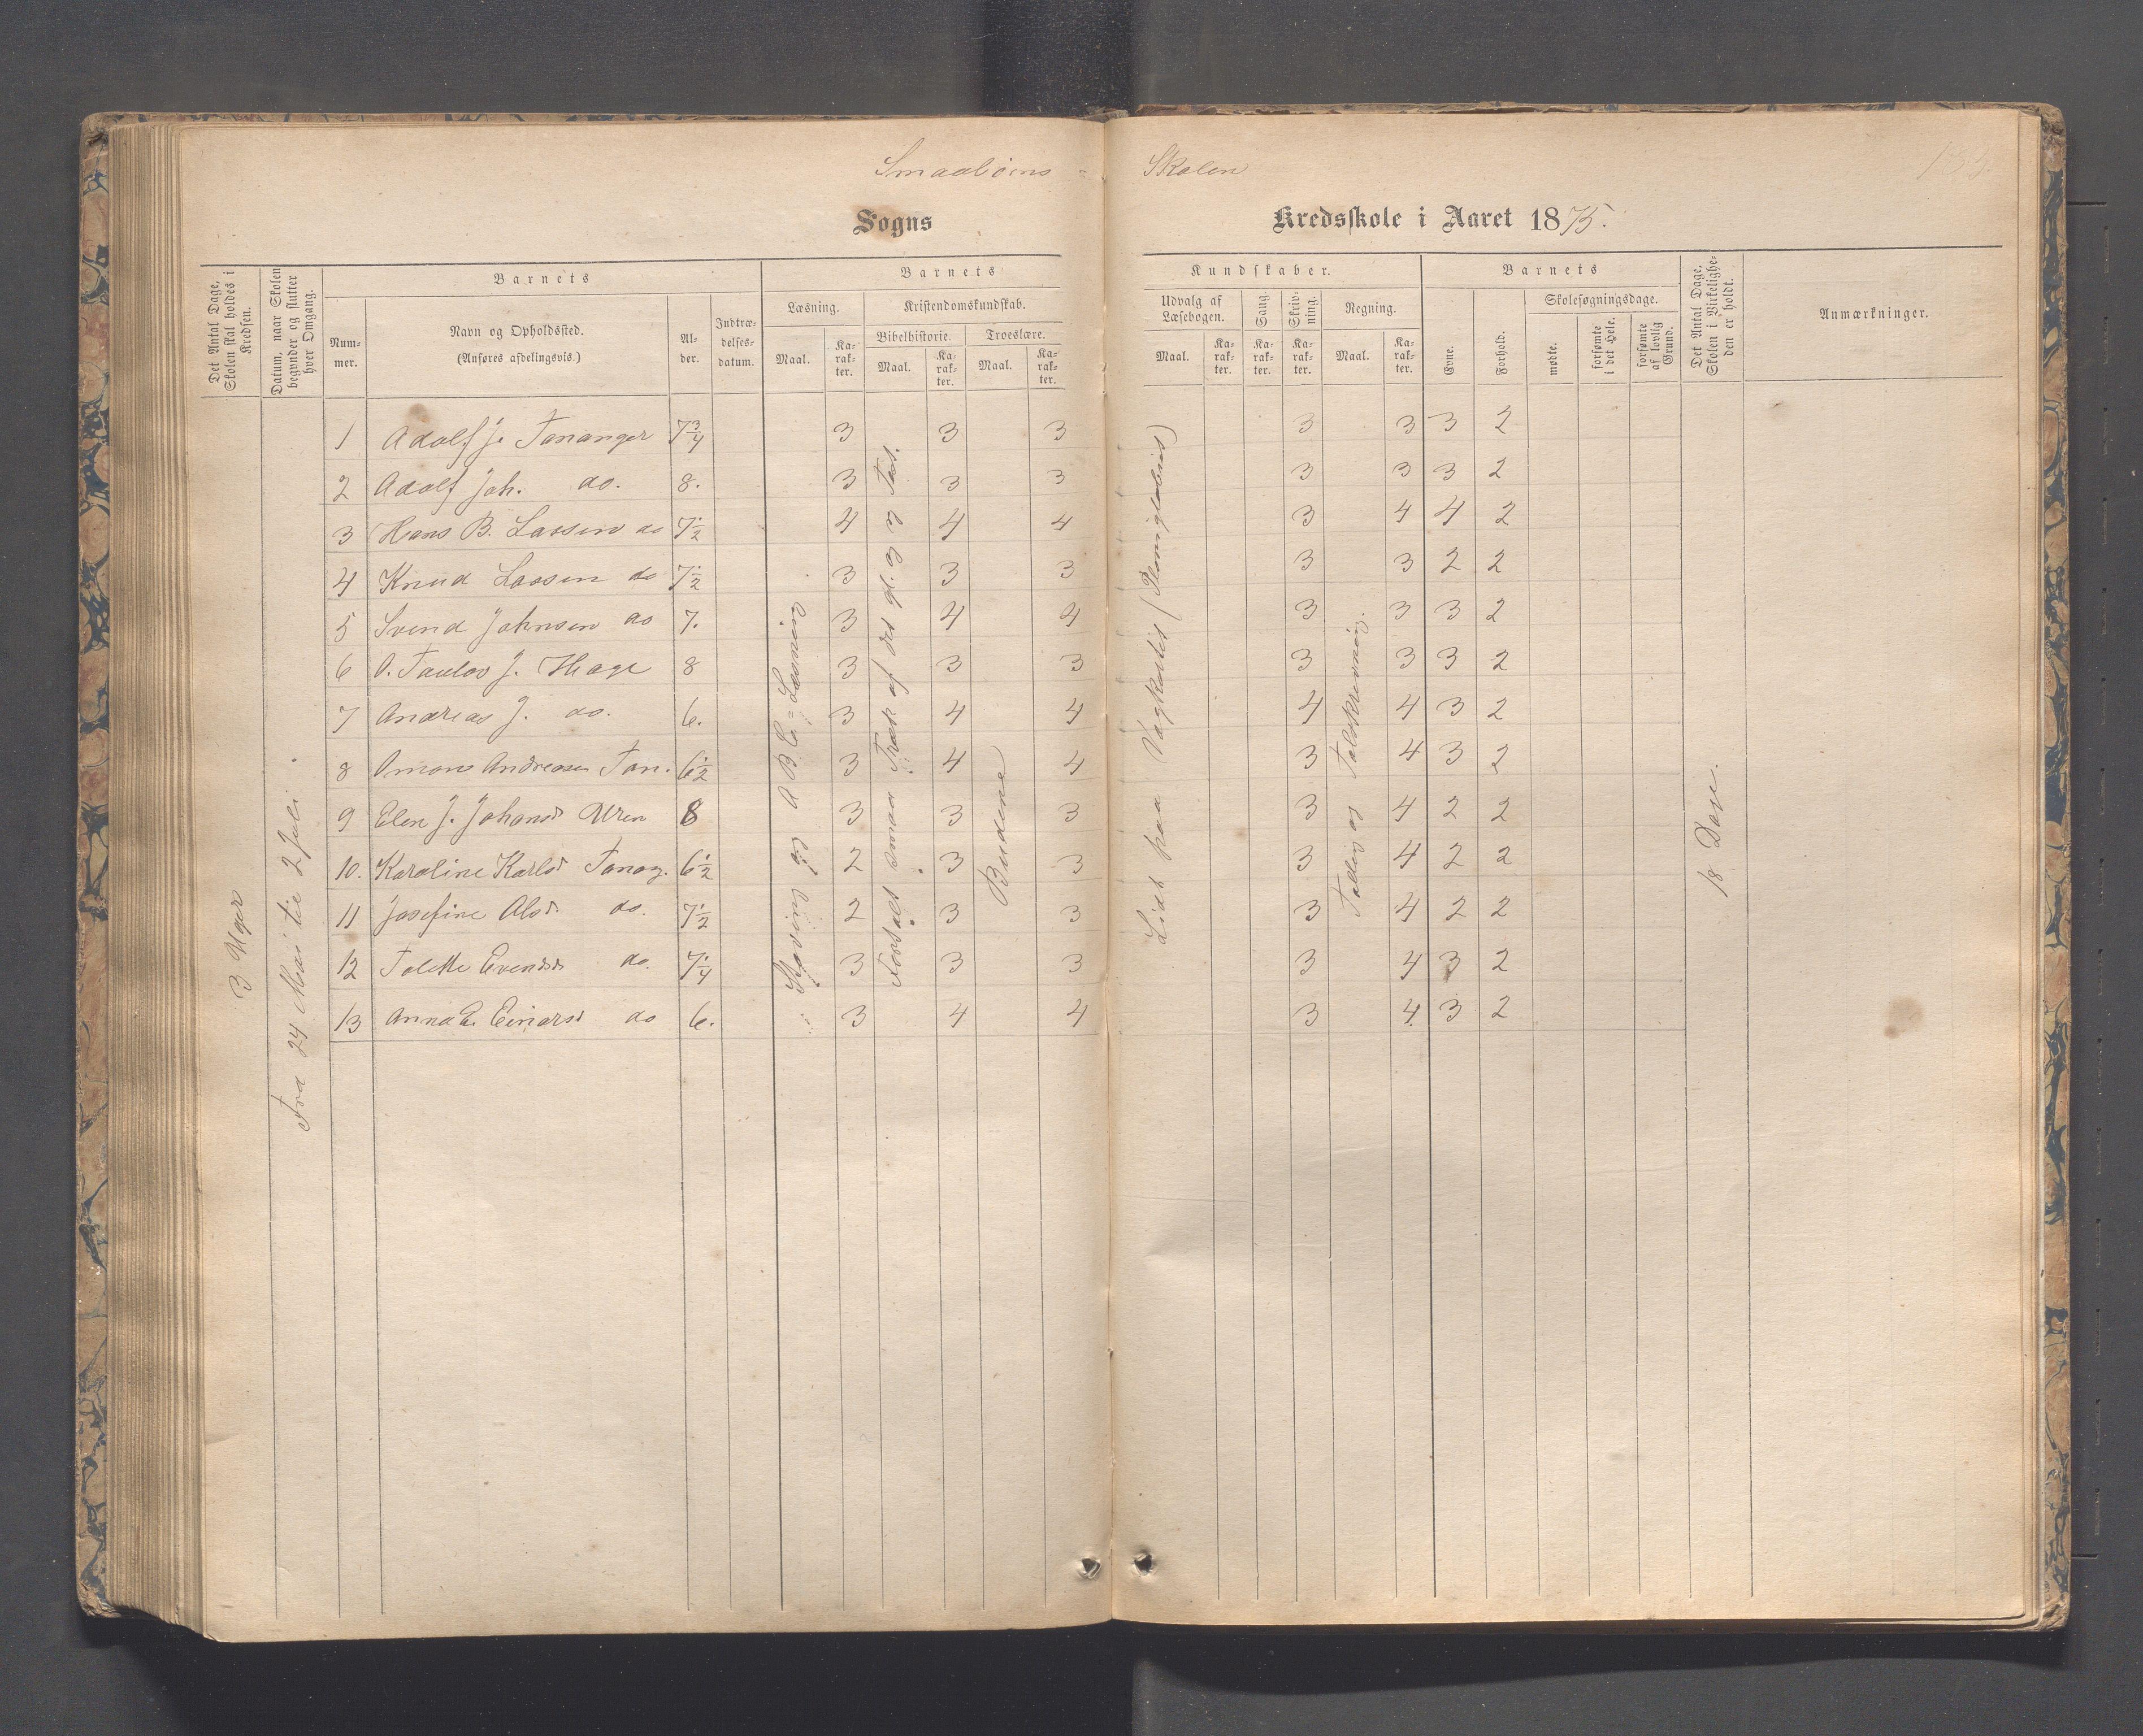 Smaabørns - Skolen
Sogns Kredsskole i Aaret 1875.
Det Antal Dage, Skolen skal holdes i Kredsen.
Datum, naar Skolen begynder og slutter hver Omgang.
Barnets
Num-mer.
Navn og Opholdssted.
(Anføres afdelingsvis.)
Al-der.
Indtræ-delses-datum.
Barnets
Læsning.
Maal.
Ka-rak-ter.
Kristendomskundskab.
Bibelhistorie.
Maal.
Ka-rak-ter.
Troeslære.
Maal.
Ka-rak-ter.
Kundskaber.
Udvalg af Læsebogen.
Maal.
Ka-rak-ter.
Sang.
Ka-rak-ter.
Skriv-ning.
Ka-rak-ter.
Regning.
Maal.
Ka-rak-ter.
Barnets
Evne.
Forhold.
Skolesøgningsdage.
mødte.
forsømte i det Hele.
forsømte af lovlig Grund.
Det Antal Dage, Skolen i Virkelighe-den er holdt.
Anmærkninger.
3 Uger
Fra 24 Mai til 2 Juli
Stavning og A B C = Læsning
Fortalt smaa Træk af det gl. og ny Test.
Budene
Lidt paa
Talling og Talskrivning.
18 Dage.
1 Adolf J. Tananger 7 3/4 3 3 3 3 3 3 2
2 Adolf Joh. do. 8. 3 3 3 3 3 3 2
3 Hans B. Lassen do 7 1/2 4 4 4 3 4 4 2
4 Knud Lassen do 7 1/2 3 3 3 3 3 2 2
5 Svend Johnsen do 7. 3 4 4 3 3 3 2
6 O. Taulov J. Hage 8 3 3 3 3 3 3 2
7 Andreas J. do. 6. 3 4 4 4 4 3 2
8 Omons Andreasen Tan. 6 1/2 3 4 4 3 4 3 2
9 Elen J. Johansd 8 3 3 3 3 4 2 2
10. Karoline Karlsd Tanag. 6 1/2 2 3 3 3 4 2 2
11 Josefine Olsd. do. 7 1/2 2 3 3 3 4 2 2
12 Tolette Evendsd do. 7 1/4 3 3 3 3 4 3 2
13 Anna E. Einarsd do 6. 3 4 4 3 4. 3 2